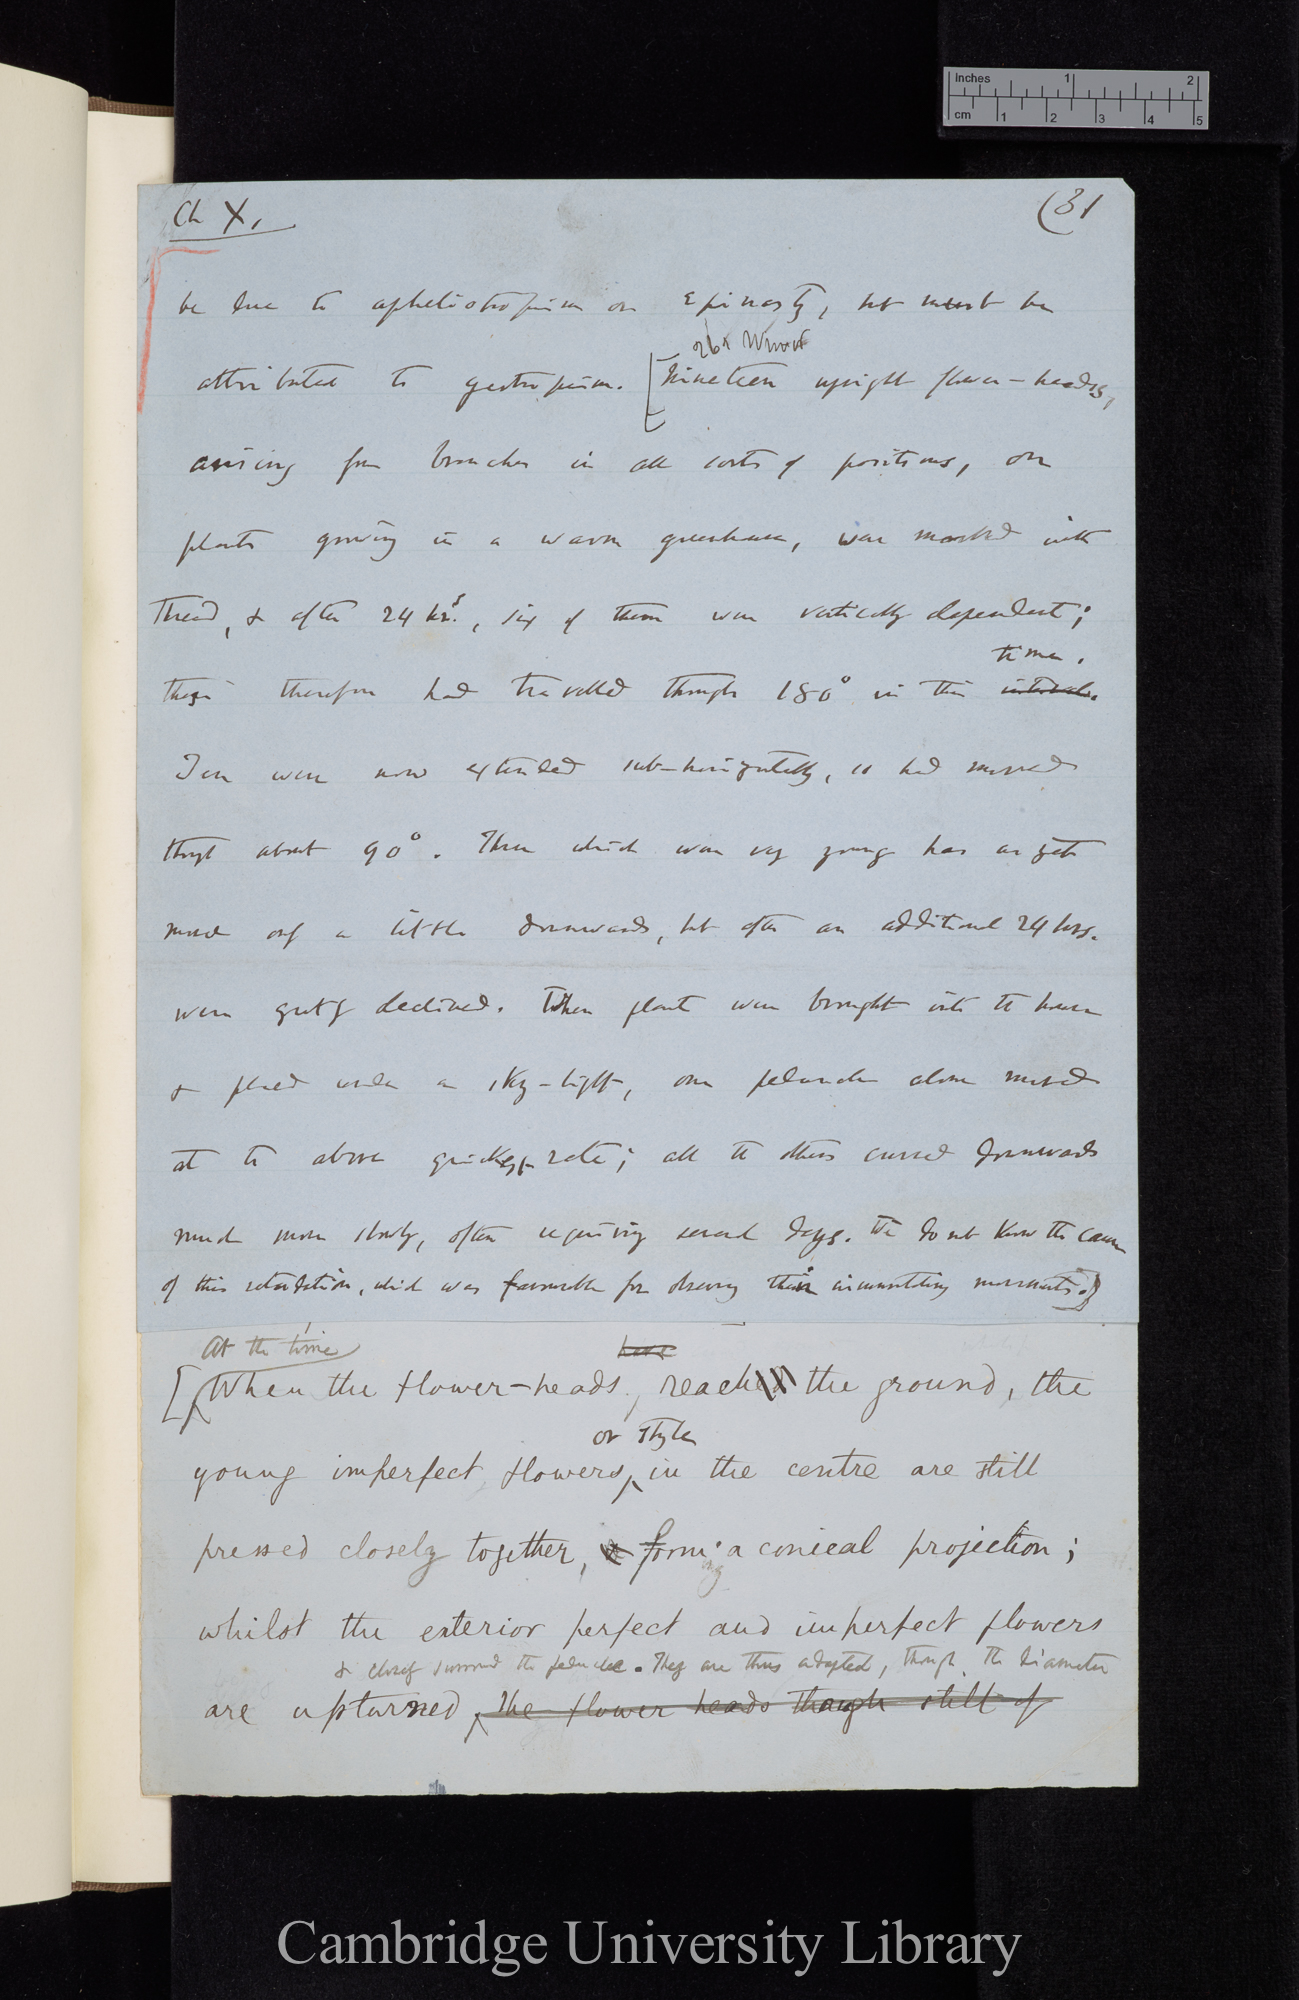 Inches 1 2
cm 1 2 3 4 5
Ch X,
(31
be due to apheliotropism or Epinasty, but must be
attributed to geotropism. [Nineteen upright flower-heads,
arising from branches in all sorts of positions, on
plants growing in a warm greenhouse, were marked with
thread, & after 24 hrs., six of them were vertically dependent;
time.
these therefore had travelled through 180° in this interval.
Ten were now extended sub-horizontally, so had moved
through about 90°. Three which were very young had as yet
moved only a little downwards, but after an additional 24 hrs.
were greatly declined. When plants were brought into the house
& placed under a sky-light, one peduncle alone moved
at the above quickest rate; all the others curved downwards
much more slowly, often requiring several days. We do not know the cause
of this retardation, which was favourable for observing their circumnutating movements.]
At the time
have
[When the flower-heads, reached the ground, the
or styles
young imperfect flowers, in the centre are still
pressed closely together, & form a conical projection;
ing
whilst the exterior perfect and imperfect flowers
& closely surround the peduncle. They are thus adapted, though the diameter
are upturned, The flower heads though still of
Cambridge University Library